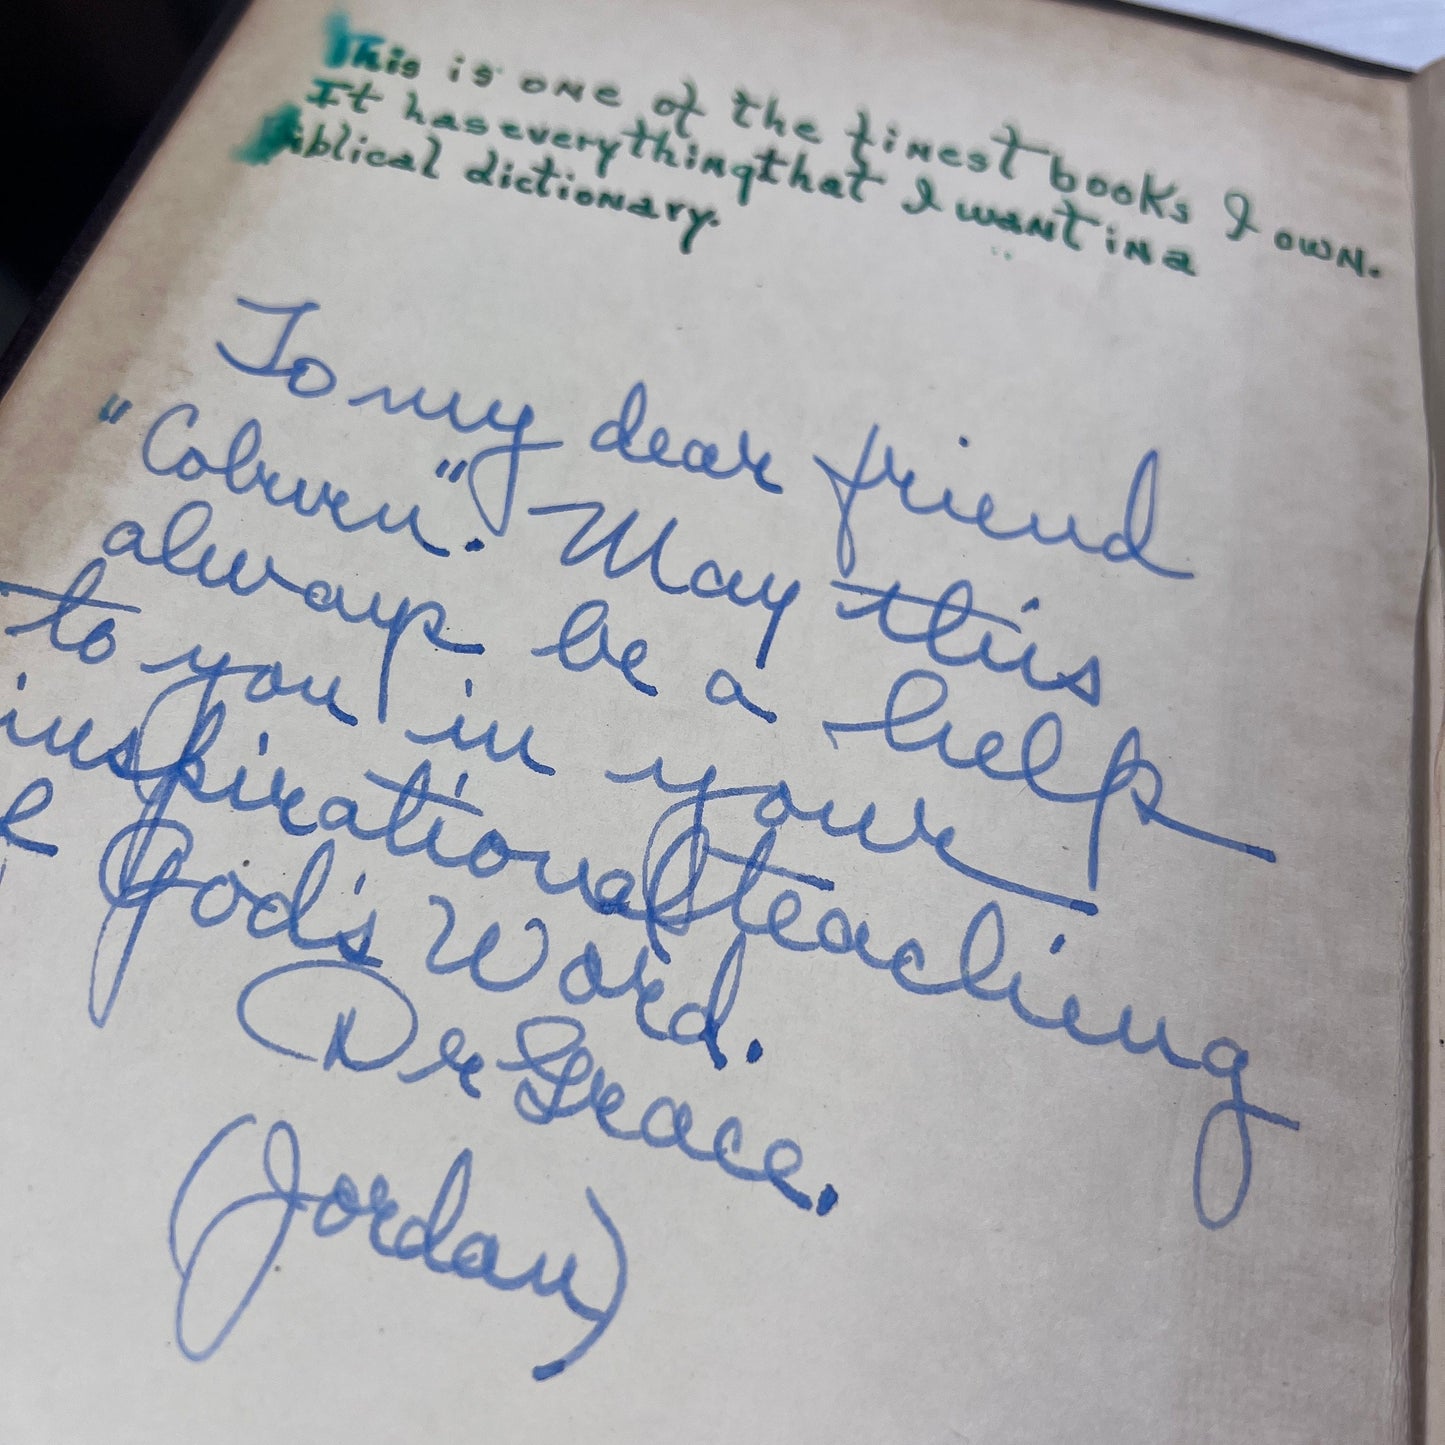 This is one of the finest books I own.
It has everything that I want in a
Biblical dictionary.
To my dear friend
"Coburn". May this
always be a help
to you in your
inspirational teaching
God's Word.
Dr Grace.
(Jordan)